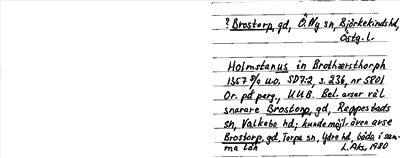 ? Brostorp, gd, Ö. Ny sn, Björkekinds hd,
Östg. l.
Holmstanus in Brothærsthorph
1357 8/9 u.o. SD 7:2, s. 236, nr 5801
Or. på perg., UUB. Bel. avser väl
snarare Brostorp, gd, Rappestads
sn, Valkebo hd; kunde möjl. även avse
Brostorp, gd, Torpa sn, Ydre hd, båda i sam-
ma län
L. Aks, 1980